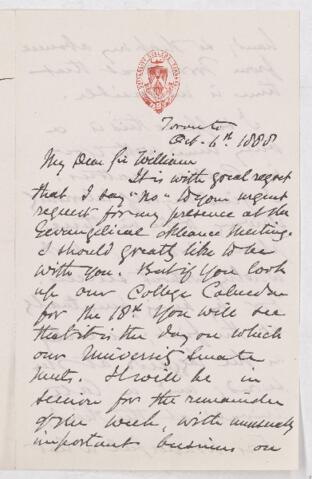 Toronto
Oct. 6th. 1888
My Dear Sir William
It is with great regret
that I say "no" to your urgent
request for my presence at the
Evangelical Alliance Meeting.
I should greatly like to be
with you. But if you look
up our College Calendar
for the 18th you will see
that it is the day on which
our University Senate
meets. It will be in
session for the remainder
of the week, with unusually
important business on